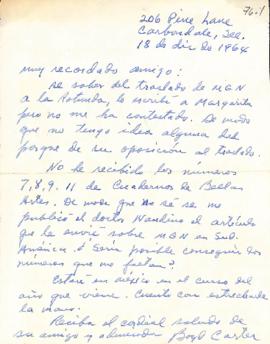 76.1
206 Pine Lane
Carbondale, Ill.
18 de dic de 1964
Muy recordado amigo:
Al saber del traslado de MGN
a la Rotonda, le escribí a Margarita
pero no me ha contestado. De modo
que no tengo idea alguna del
porque de su oposición al traslado.
No he recibido los números
7, 8, 9, 11 de Cuadernos de Bellas
Artes. De modo que no sé se me
publicó el doctor Nandino el artículo
que le envié sobre MGN en Sud-
América. ¿Sería posible conseguir los
números que me faltan?
Estaré en México en el curso del
año que viene. Cuento con estrecharle
la mano.
Reciba el cordial saludo de
su amigo y admirador
Boyd Carter